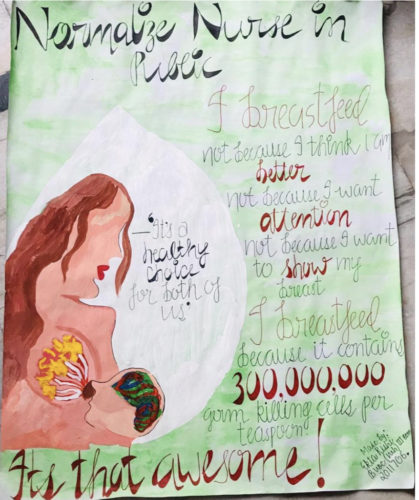 Normalize Nurse in
Public
I breastfeed
not because I think I am
better
not because I want
attention
not because I want
to show my
breast
I breastfeed
because it contains
300,000,000
germ killing cells per
teaspoon
It's that awesome!
—"It's a
healthy
choice
for both of
us"
Made by: